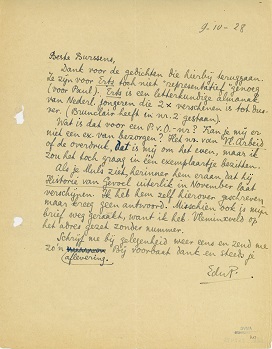 9-10-28
Beste Burssens,
Dank voor de gedichten die hierbij teruggaan.
Ze zijn voor Erts toch niet "representatief" genoeg
(voor Paul). Erts is een letterkundige almanak
van Nederl. jongeren die 2 x verschenen is tot dus-
ver. (Brunclair heeft in nr. 2 gestaan).
Wat is dat voor een P.v.O.-nr? Kan je mij er
niet een ex. van bezorgen? Het nr. van Vl. Arbeid
of de overdruk, dat is mij om het even, maar ik
zou het toch graag in één exemplaartje bezitten.
Als je Muls ziet, herinner hem eraan dat hij
Historie van Gevoel uiterlijk in November laat
verschijnen. Ik heb hem zelf hierover geschreven
maar kreeg geen antwoord. Misschien ook is mijn
brief weg geraakt, want ik heb Vleminckveld op
het adres gezet zonder nummer.
Schrijf me bij gelegenheid weer eens en zend me
zo'n aflevering. Bij voorbaat dank en steeds je
EduP.